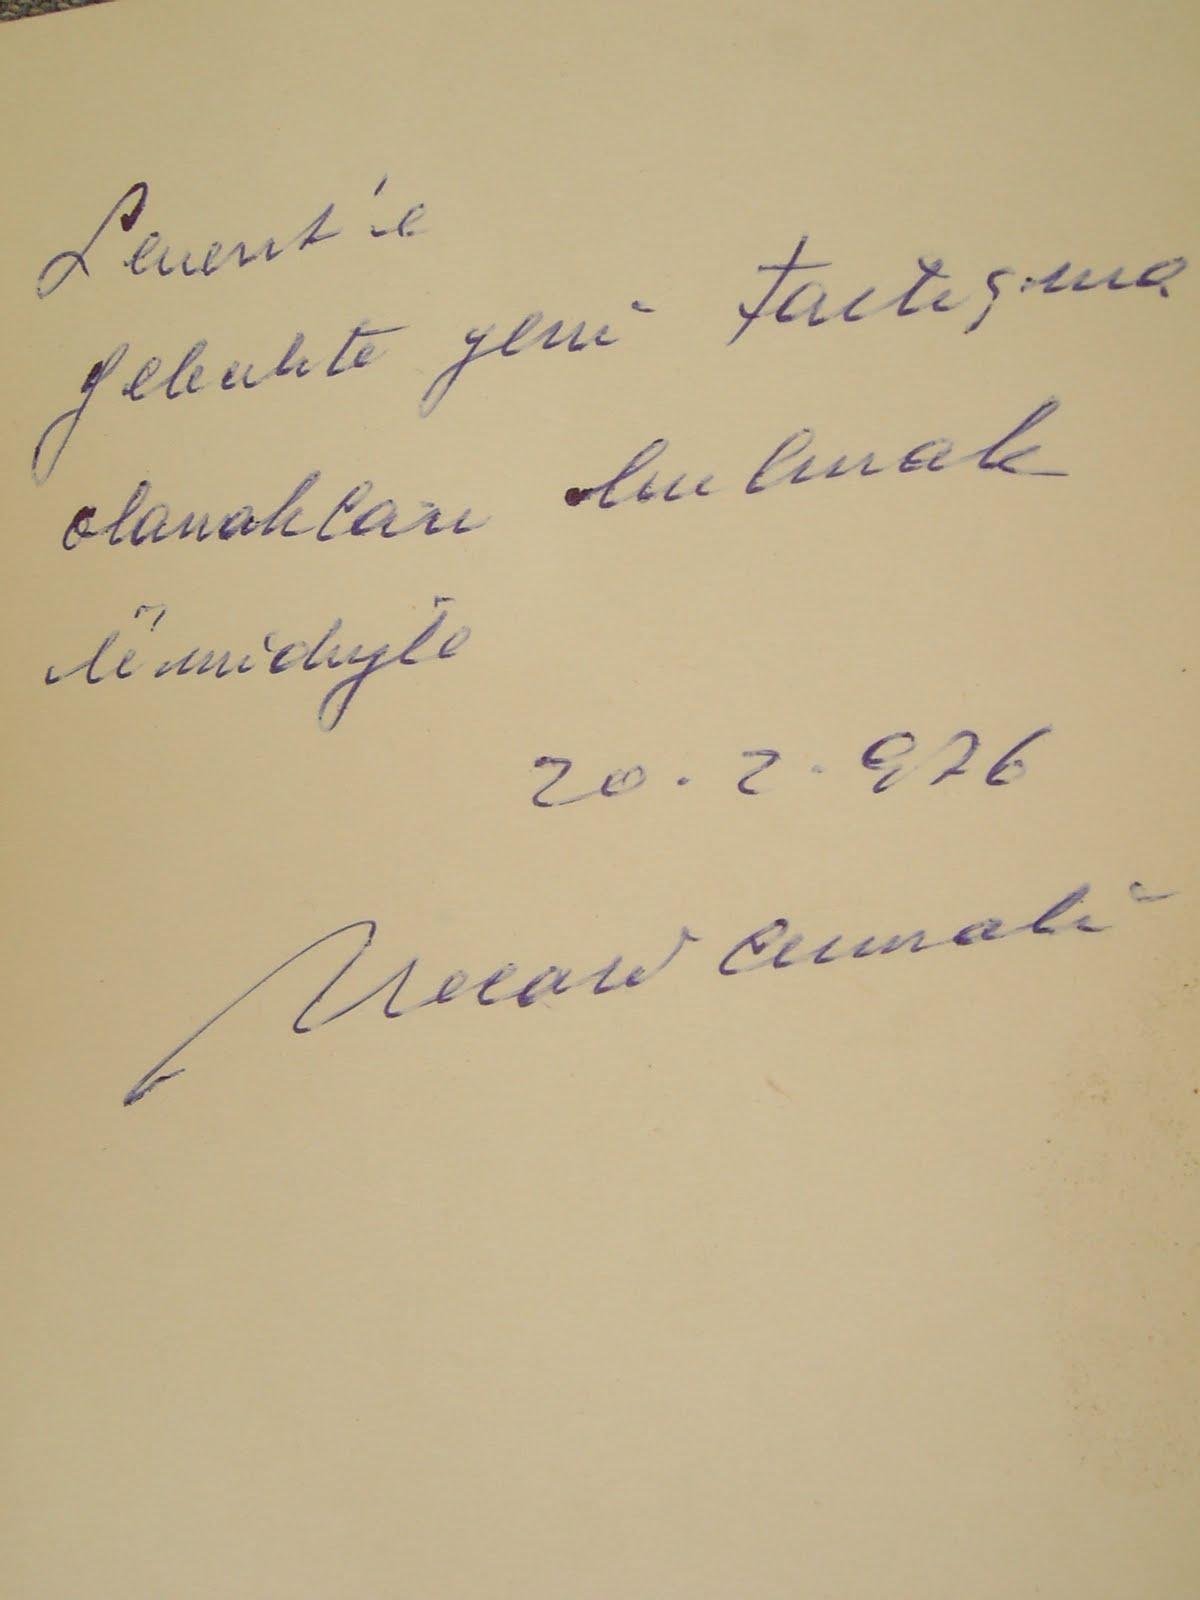 Levent'e
gelecekte yeni tartışma
olanakları bulmak
ümidiyle
20.2.976
Necati Cumalı